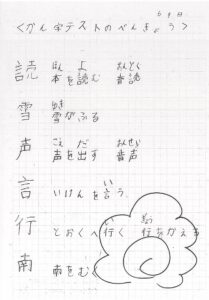 〈かん字テストのべんきょう〉
ほん よ おんどく
読 本を読む 音読
ゆき
雪 雪がふる
こえ だ おんせい
声 声を出す 音声
い
言 いけんを言う
い ぎょう
行 とおくへ行く 行をかえる
南 南をむ